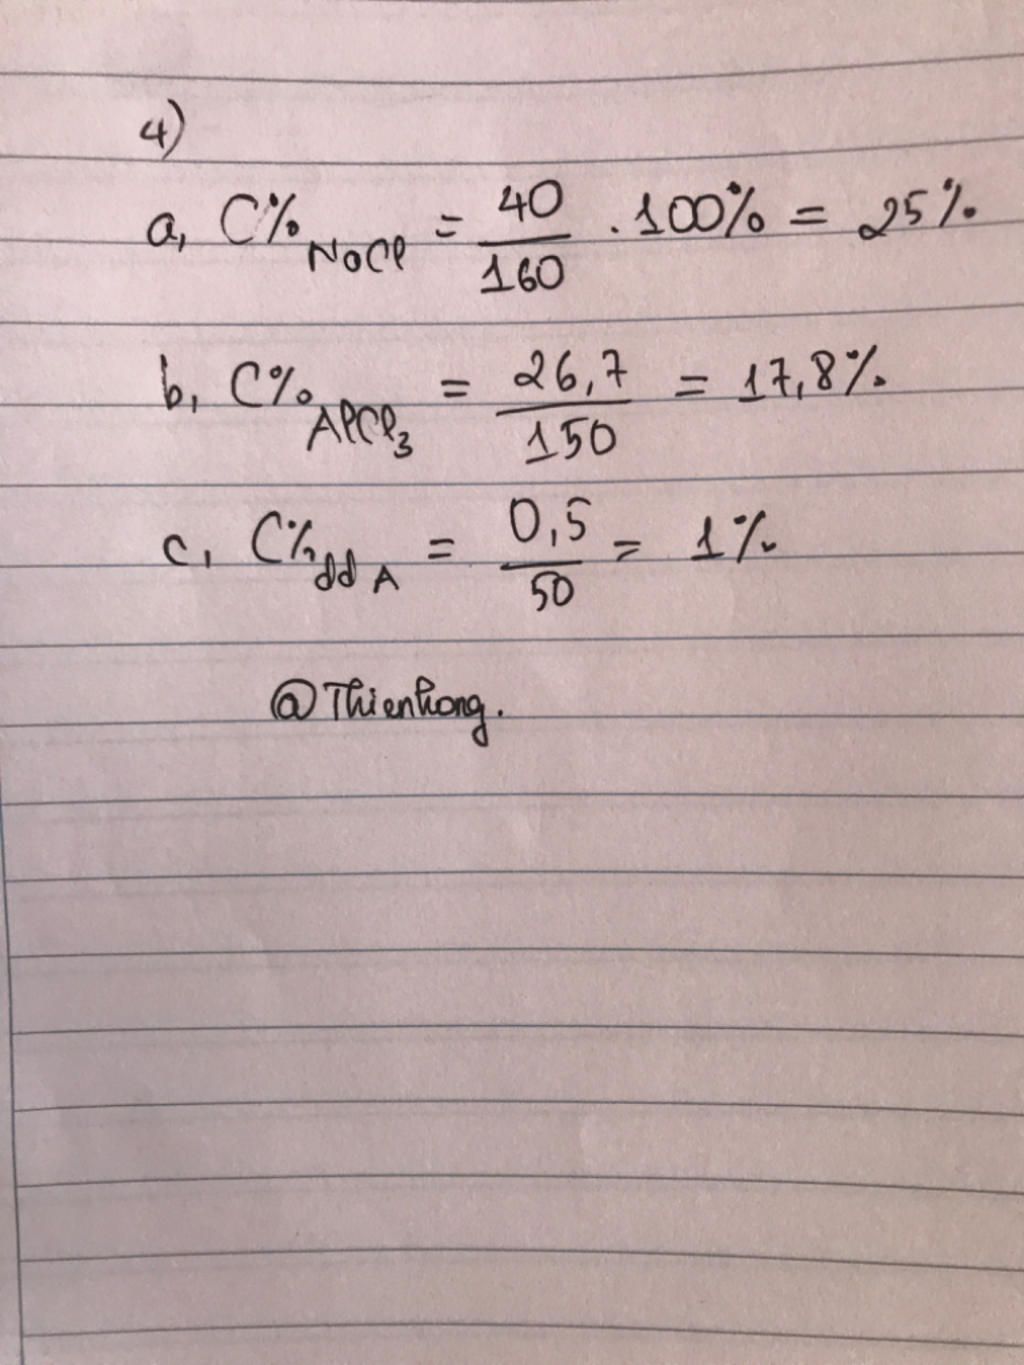 4)
a, C% NaCl = 40/160 . 100% = 25%
b, C% AlCl3 = 26,7/150 = 17,8%
c, C% dd A = 0,5/50 = 1%
@Thienhong.